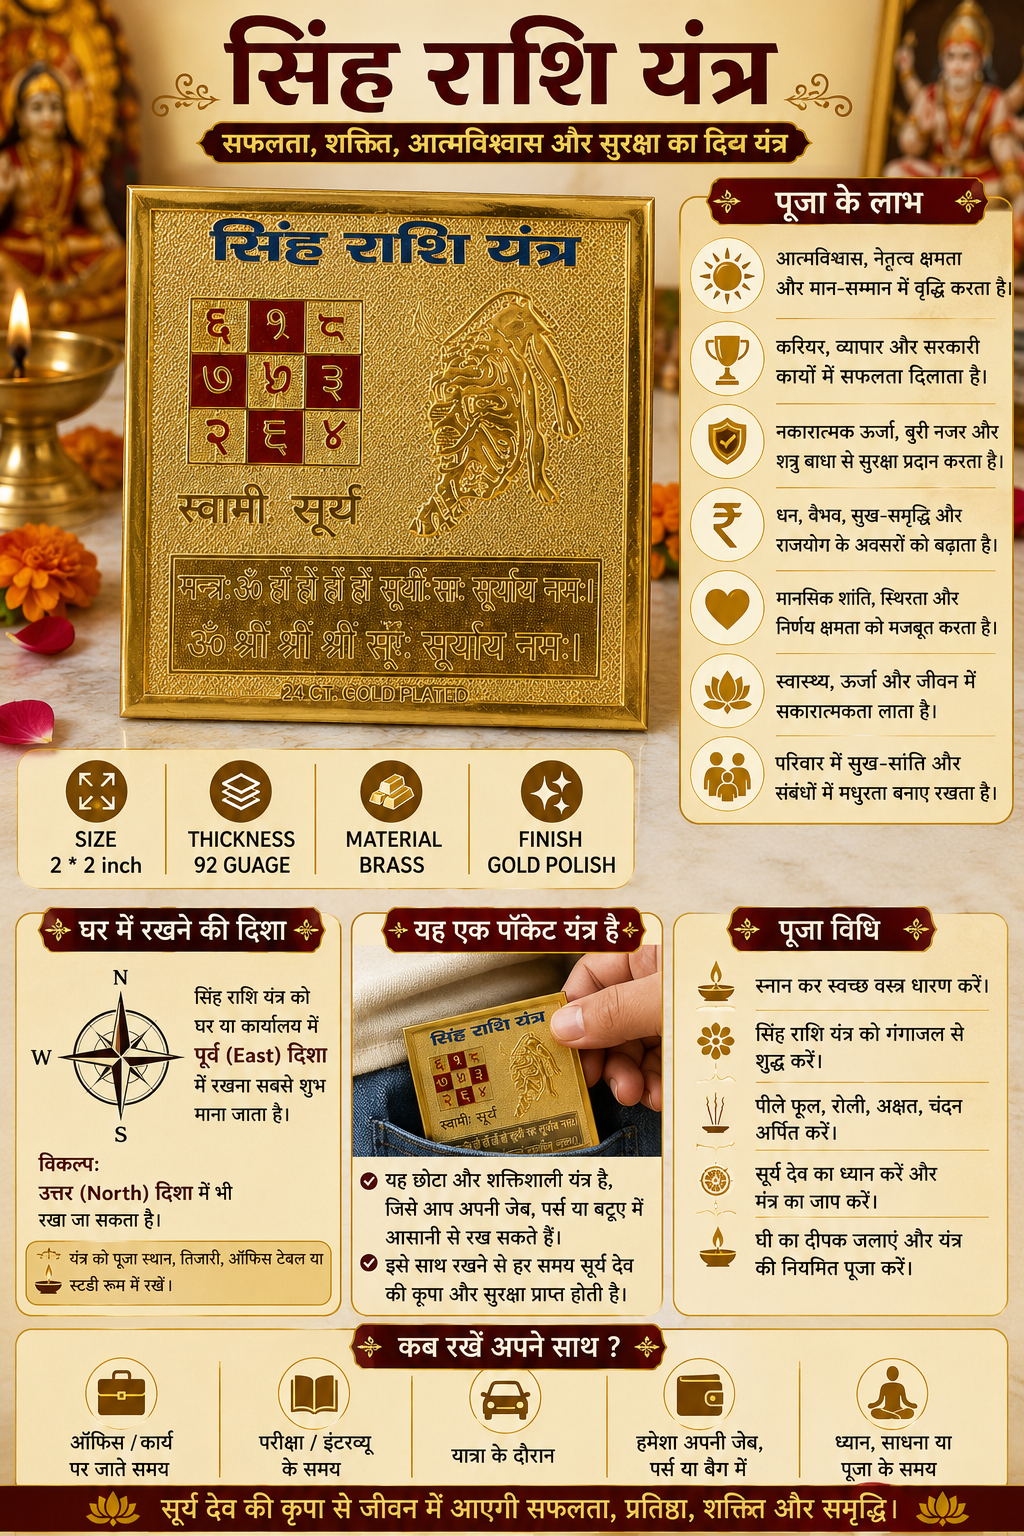 सिंह राशि यंत्र
सफलता, शक्ति, आत्मविश्वास और सुरक्षा का दिव्य यंत्र
सिंह राशि यंत्र
६ १ ८
७ ५ ३
२ ६ ४
स्वामी: सूर्य
मन्त्र: ॐ ह्रों ह्रों ह्रों ह्रों सूर्याय नमः।
ॐ श्रीं श्रीं श्रीं सूर्याय नमः।
24 CT. GOLD PLATED
पूजा के लाभ
आत्मविश्वास, नेतृत्व क्षमता
और मान-सम्मान में वृद्धि करता है।
करियर, व्यापार और सरकारी
कायों में सफलता दिलाता है।
नकारात्मक ऊर्जा, बुरी नजर और
शत्रु बाधा से सुरक्षा प्रदान करता है।
धन, वैभव, सुख-समृद्धि और
राजयोग के अवसरों को बढ़ाता है।
मानसिक शांति, स्थिरता और
निर्णय क्षमता को मजबूत करता है।
स्वास्थ्य, ऊर्जा और जीवन में
सकारात्मकता लाता है।
परिवार में सुख-सांति और
संबंधों में मधुरता बनाए रखता है।
SIZE
2 * 2 inch
THICKNESS
92 GUAGE
MATERIAL
BRASS
FINISH
GOLD POLISH
घर में रखने की दिशा
N
W
S
सिंह राशि यंत्र को
घर या कार्यालय में
पूर्व (East) दिशा
में रखना सबसे शुभ
माना जाता है।
विकल्प:
उत्तर (North) दिशा में भी
रखा जा सकता है।
यंत्र को पूजा स्थान, तिजारी, ऑफिस टेबल या
स्टडी रूम में रखें।
यह एक पॉकेट यंत्र है
सिंह राशि यंत्र
६ १ ८
७ ५ ३
२ ६ ४
स्वामी: सूर्य
यह छोटा और शक्तिशाली यंत्र है,
जिसे आप अपनी जेब, पर्स या बटूए में
आसानी से रख सकते हैं।
इसे साथ रखने से हर समय सूर्य देव
की कृपा और सुरक्षा प्राप्त होती है।
पूजा विधि
स्नान कर स्वच्छ वस्त्र धारण करें।
सिंह राशि यंत्र को गंगाजल से
शुद्ध करें।
पीले फूल, रोली, अक्षत, चंदन
अर्पित करें।
सूर्य देव का ध्यान करें और
मंत्र का जाप करें।
घी का दीपक जलाएं और यंत्र
की नियमित पूजा करें।
कब रखें अपने साथ ?
ऑफिस / कार्य
पर जाते समय
परीक्षा / इंटरव्यू
के समय
यात्रा के दौरान
हमेशा अपनी जेब,
पर्स या बैग में
ध्यान, साधना या
पूजा के समय
सूर्य देव की कृपा से जीवन में आएगी सफलता, प्रतिष्ठा, शक्ति और समृद्धि।